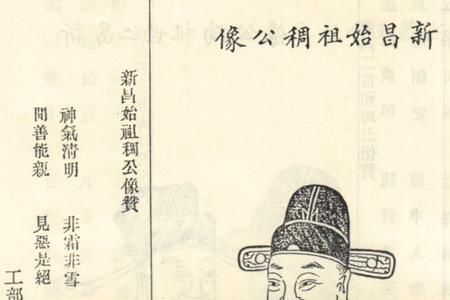 新昌始祖稠公像
新昌始祖稠公像贊
神氣清明 非霜非雪
聞善能親 見惡是絕
工部